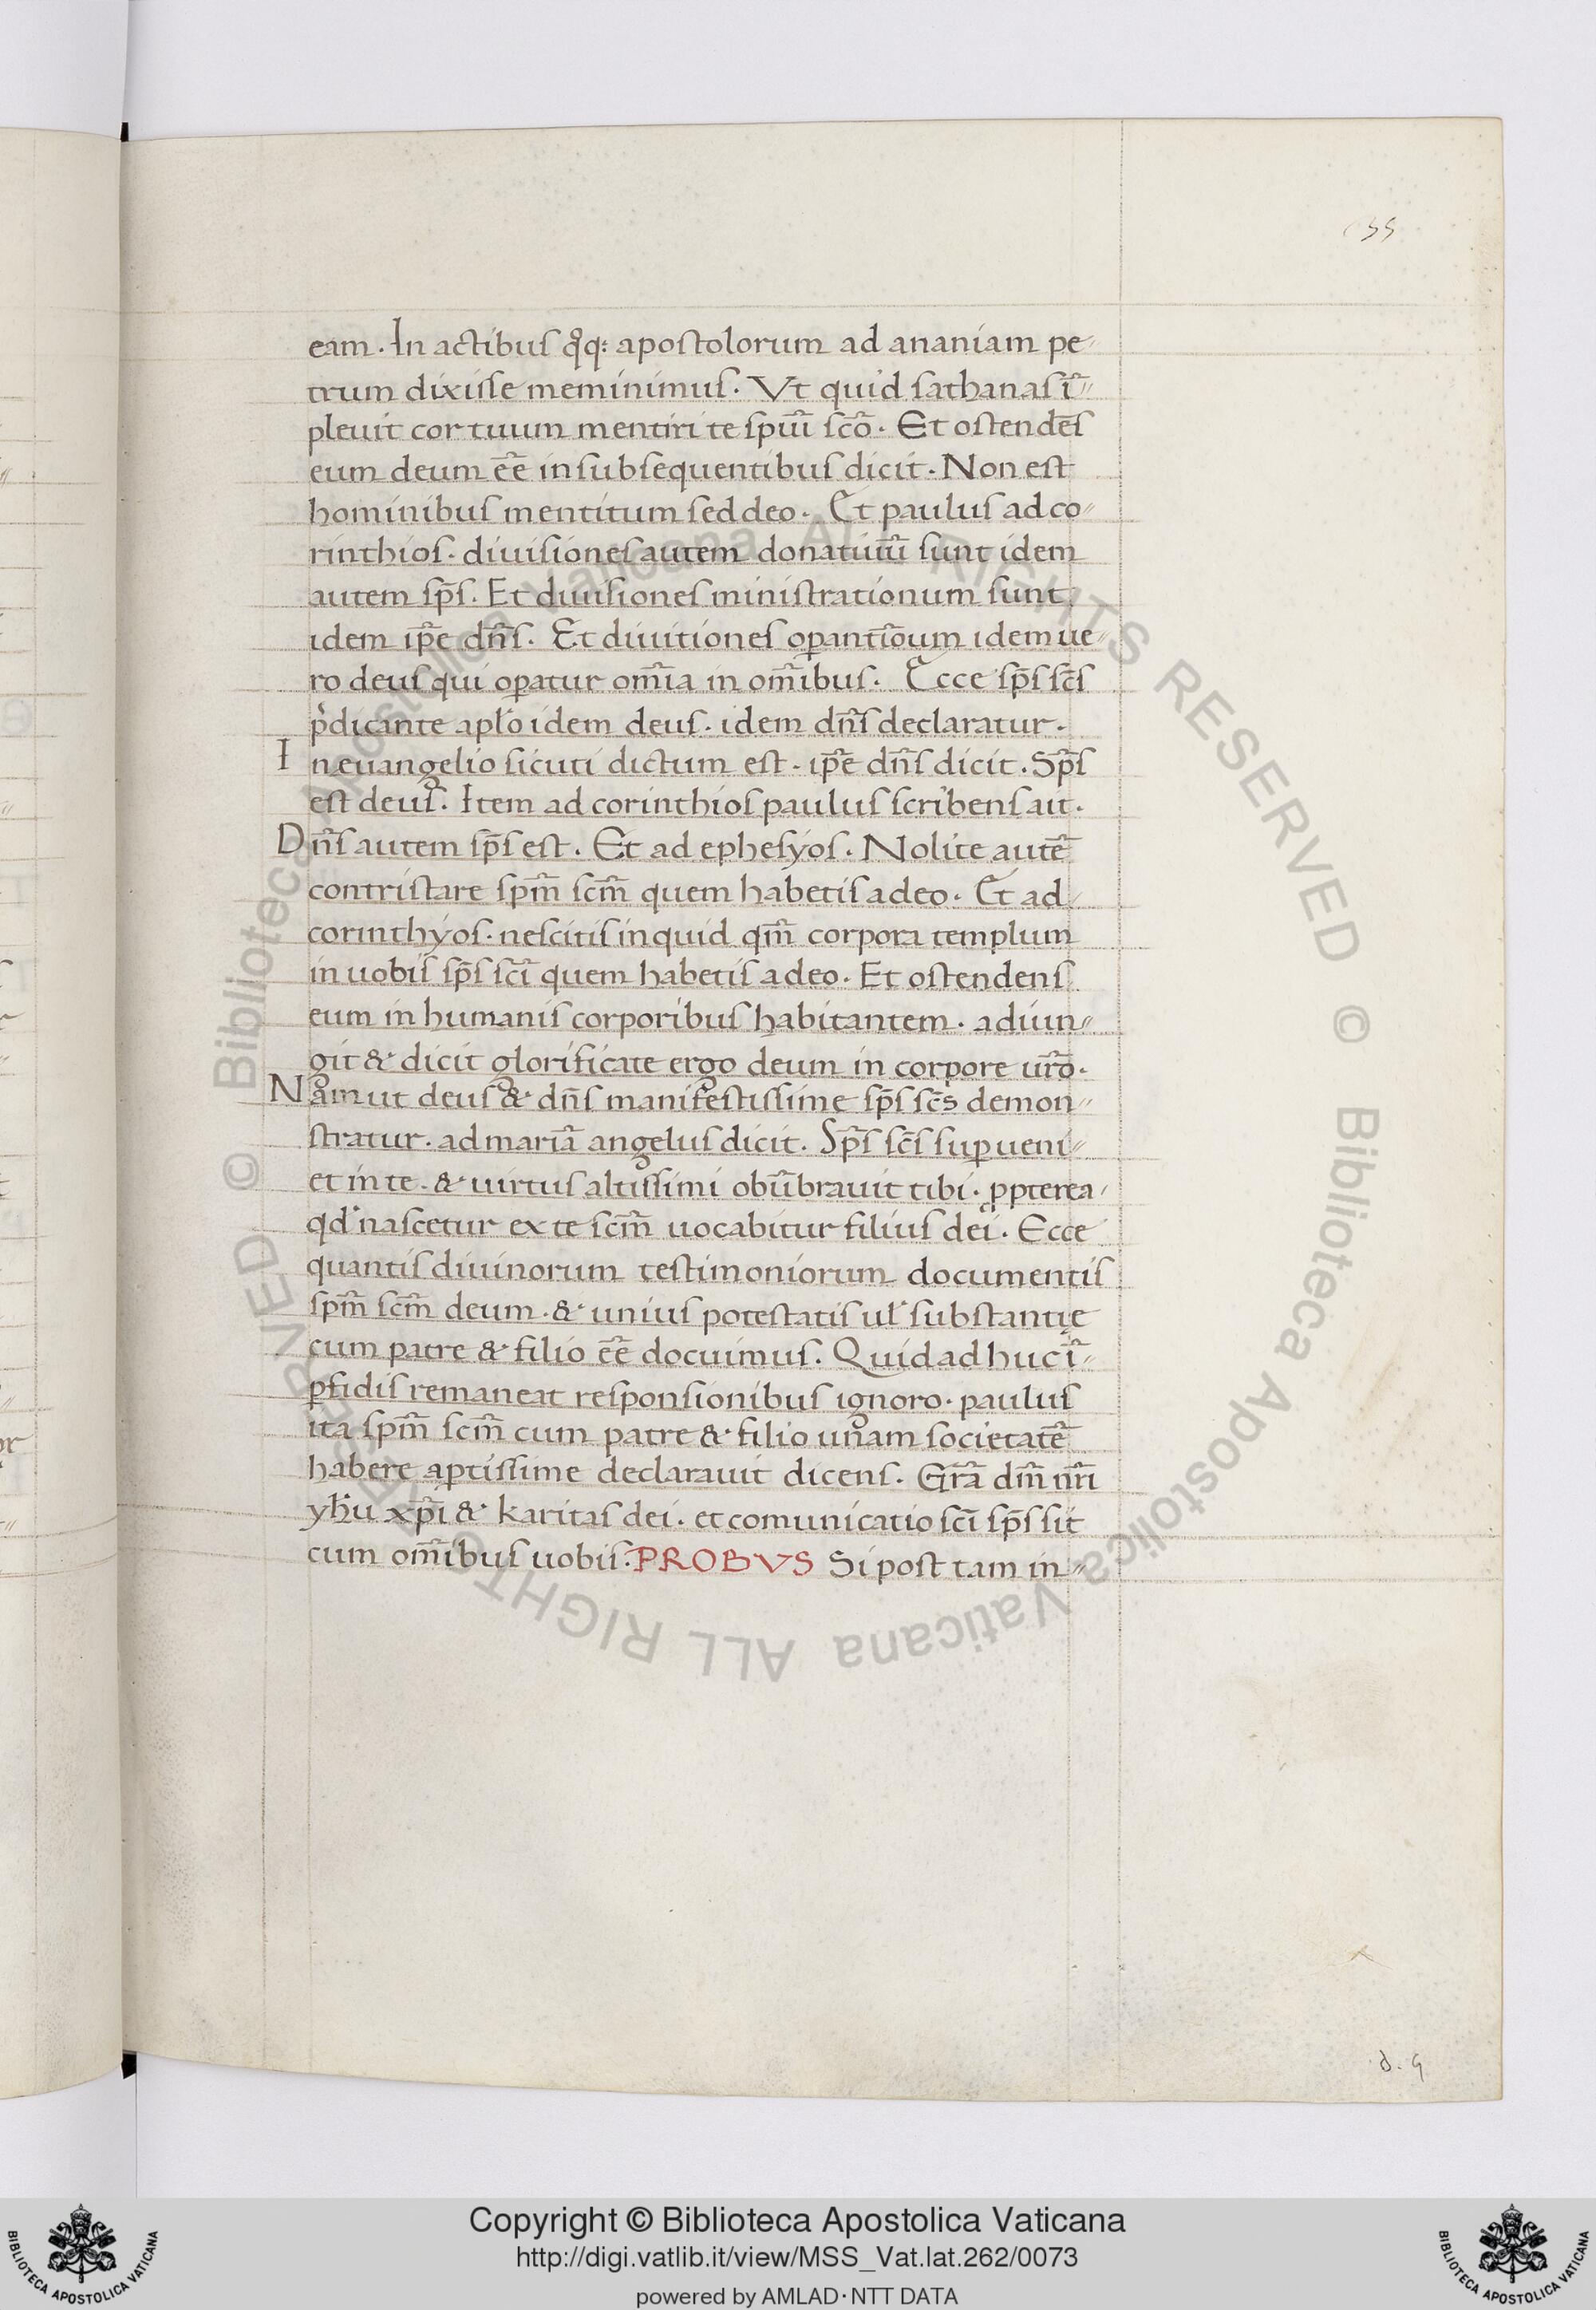 155
eam. In actibus qͦq: apostolorum ad ananiam pe-
trum dixisse meminimus. Vt quid sathanas ī-
pleuit cor tuum mentiri te spiū scō. Et ostendēs
eum deum eē in subsequentibus dicit. Non est
hominibus mentitum sed deo. Et paulus ad co-
rinthios. diuisiones autem donatiuū sunt idem
autem sp̄s. Et diuisiones ministrationum sunt,
idem ip̄e dn̄s. Et diuitiones oꝑantiōum idem ue-
ro deus qui oꝑatur om̄ia in om̄ibus. Ecce sp̄s sc̄s
p̓dicante apl̓o idem deus. idem dn̄s declaratur.
In euangelio sicuti dictum est. ip̄e dn̄s dicit. Sp̄s
est deus. Item ad corinthios paulus scribens ait.
Dn̄s autem sp̄s est. Et ad ephesyos. Nolite autē
contristare spm̄ scm̄ quem habetis a deo. Et ad
corinthyos. nescitis inquid qm̄ corpora templum
in uobis sp̄s sci̅ quem habetis a deo. Et ostendens
eum in humanis corporibus habitantem. adiun-
git & dicit glorificate ergo deum in corpore ur̄o.
Nam ut deus & dn̄s manifestissime sp̄s sc̄s demon-
stratur. ad mariā angelus dicit. Sp̄s sc̄s suꝑueni-
et in te. & uirtus altissimi obūbrauit tibi. ꝓpterea
qd̓ nascetur ex te scm̄ uocabitur filius dei. Ecce
quantis diuinorum testimoniorum documentis
spm̄ scm̄ deum. & unius potestatis ul̓ substantię
cum patre & filio eē docuimus. Quid ad huc ī-
ꝑfidis remaneat responsionibus ignoro. paulus
ita spm̄ scm̄ cum patre & filio unam societatē
habere aꝑtissime declarauit dicens. Gr̄a dm̄ nr̄i
yh̓u xp̄i & karitas dei. et comunicatio sci̅ sp̄s sit
cum om̄ibus uobis. PROBVS Si post tam in-
Copyright © Biblioteca Apostolica Vaticana
http://digi.vatlib.it/view/MSS_Vat.lat.262/0073
powered by AMLAD·NTT DATA